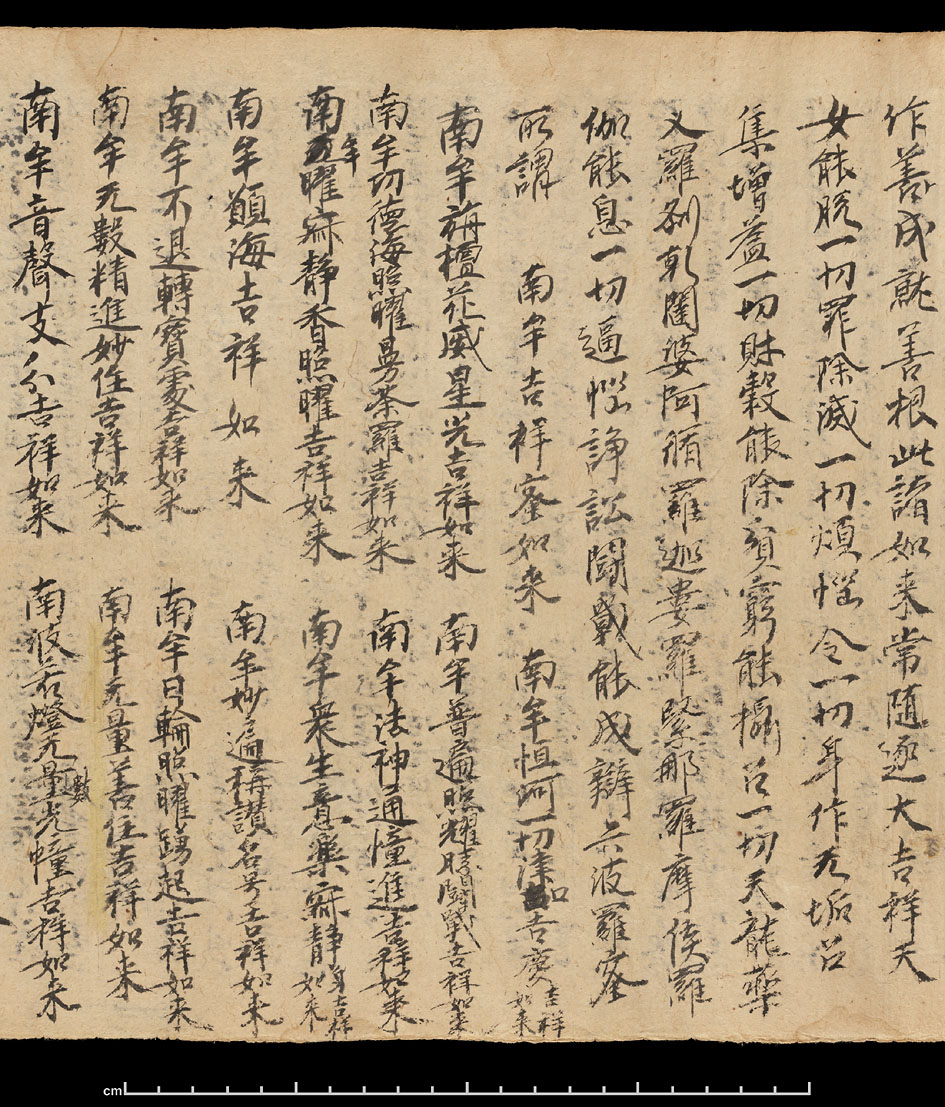 作善成就善根此諸如来常随逐大吉祥天
女能脱一切罪除滅一切煩惱令一切身作无垢召
集增益一切財穀能除貧窮能攝召一切天龍藥
叉羅刹乹闥婆阿脩羅迦婁羅緊那羅摩侯羅
伽能息一切逼惱諍訟鬪戰能成辦六波羅蜜
所謂 南牟吉祥蜜如来 南牟恒河一切津口吉慶吉祥如来
南牟栴檀花威星光吉祥如来 南牟普遍照耀勝鬪戰吉祥如来
南牟功德海照曜曼荼羅吉祥如来 南牟法神通憧進吉祥如来
南牟曜寂静香照曜吉祥如来 南牟衆生意樂寂静身吉祥如来
南牟願海吉祥如来 南牟妙遍稱讚名号吉祥如来
南牟不退轉寶處吉祥如来 南牟日輪照曜踴起吉祥如来
南牟无數精進妙住吉祥如来 南牟无量善住吉祥如来
南牟音聲支分吉祥如来 南波若燈无量數光幢吉祥如来